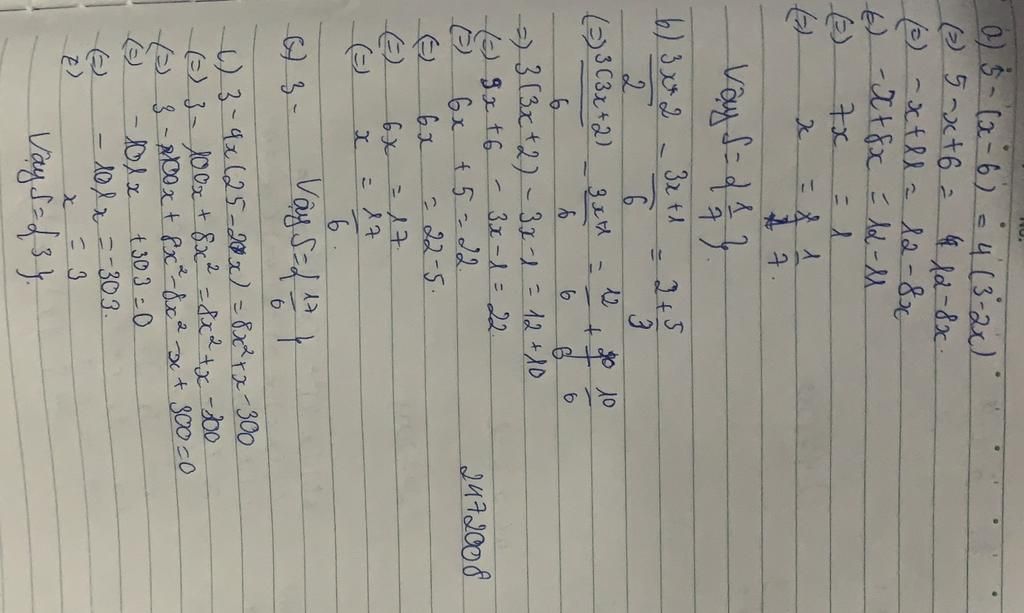 a) 5 - (x - 6) = 4 (3 - 2x)
(=) 5 - x + 6 = 12 - 8x.
(=) - x + 11 = 12 - 8x
(=) - x + 8x = 12 - 11
(=) 7x = 1
(=) x = 1/7.
Vậy S = { 1/7 }.
b) (3x + 2)/2 - (3x + 1)/6 = 2 + 5/3
(=) 3(3x + 2)/6 - (3x + 1)/6 = 12/6 + 10/6
=) 3(3x + 2) - 3x - 1 = 12 + 10
(=) 9x + 6 - 3x - 1 = 22.
(=) 6x + 5 = 22
(=) 6x = 22 - 5.
(=) 6x = 17
(=) x = 17/6.
Vậy S = { 17/6 }
c) 3 -
c) 3 - 4x (25 - 2x) = 8x² + x - 300
(=) 3 - 100x + 8x² = 8x² + x - 300
(=) 3 - 100x + 8x² - 8x² - x + 300 = 0
(=) - 101x + 303 = 0
(=) - 101x = - 303.
x = 3
Vậy S = { 3 }.
2472008